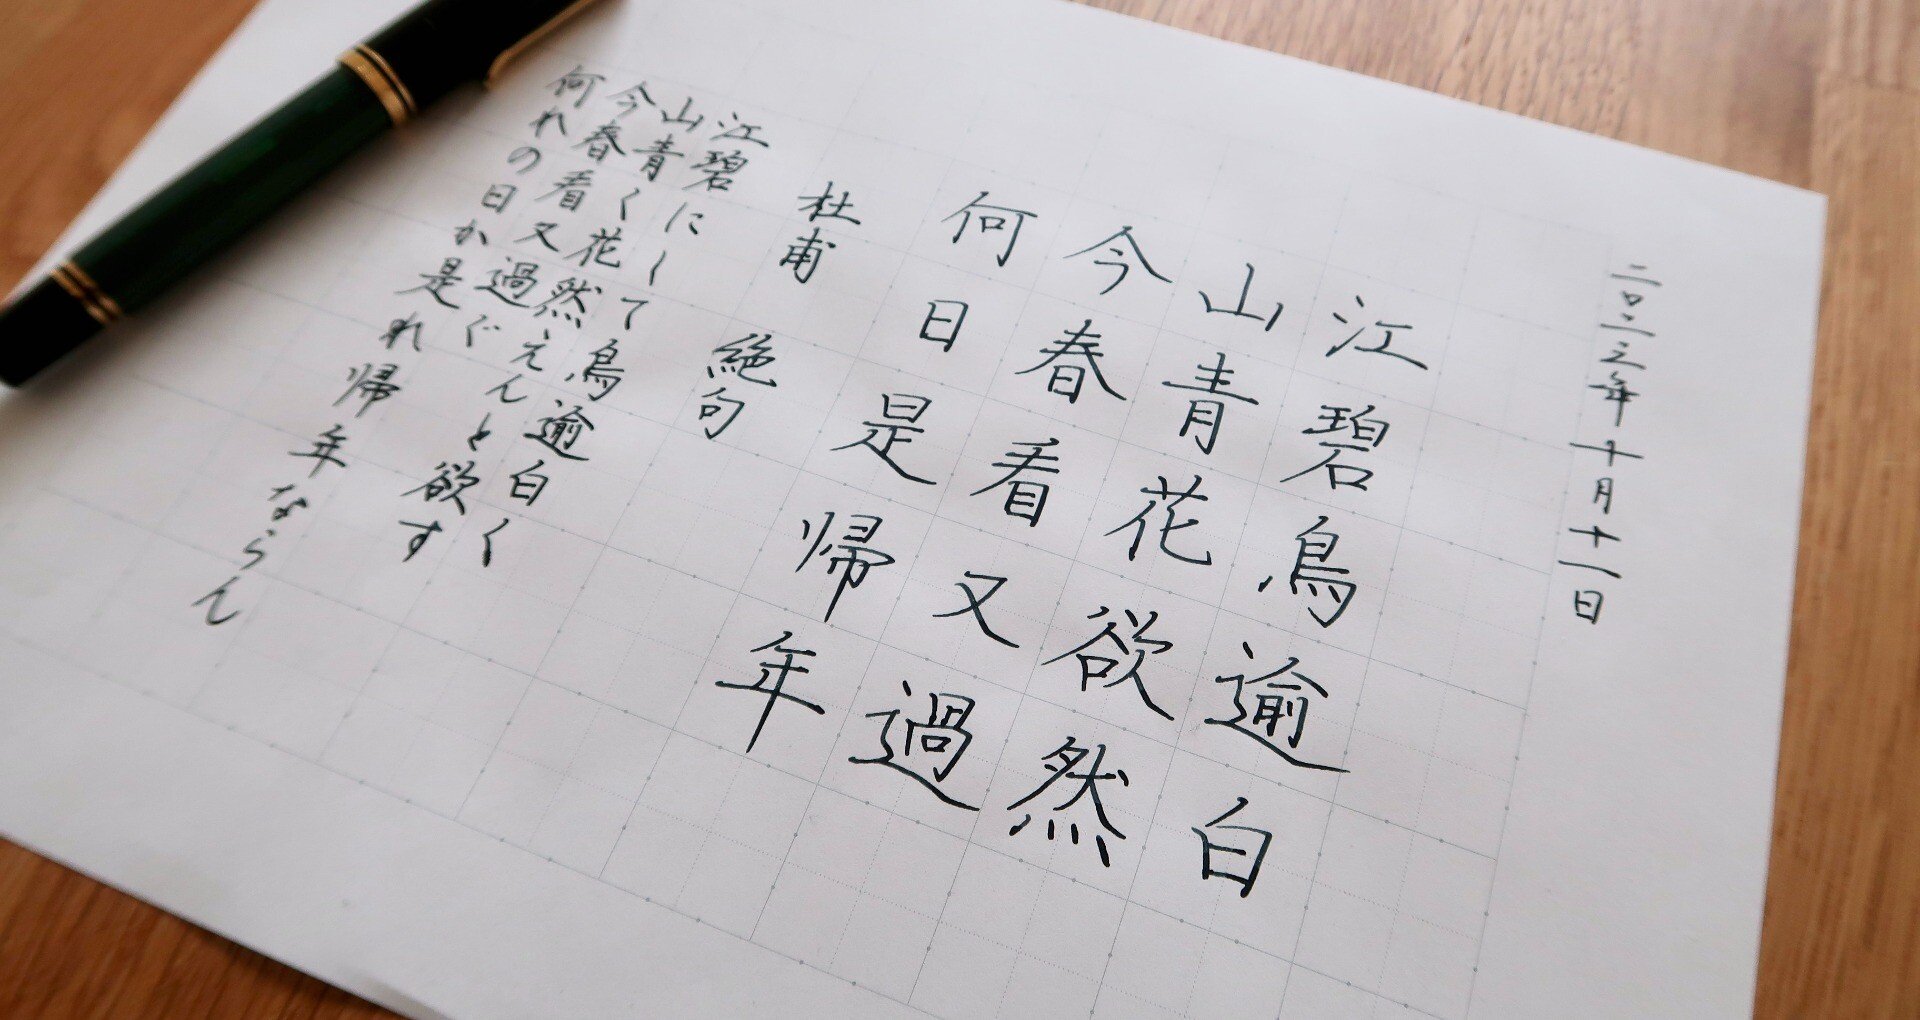 二〇二三年十月十一日
江碧鳥逾白
山青花欲然
今春看又過
何日是帰年
杜甫 絶句
江碧にして鳥逾白く
山青く花然えんと欲す
今春看又過ぐ
何れの日か是れ帰年ならん